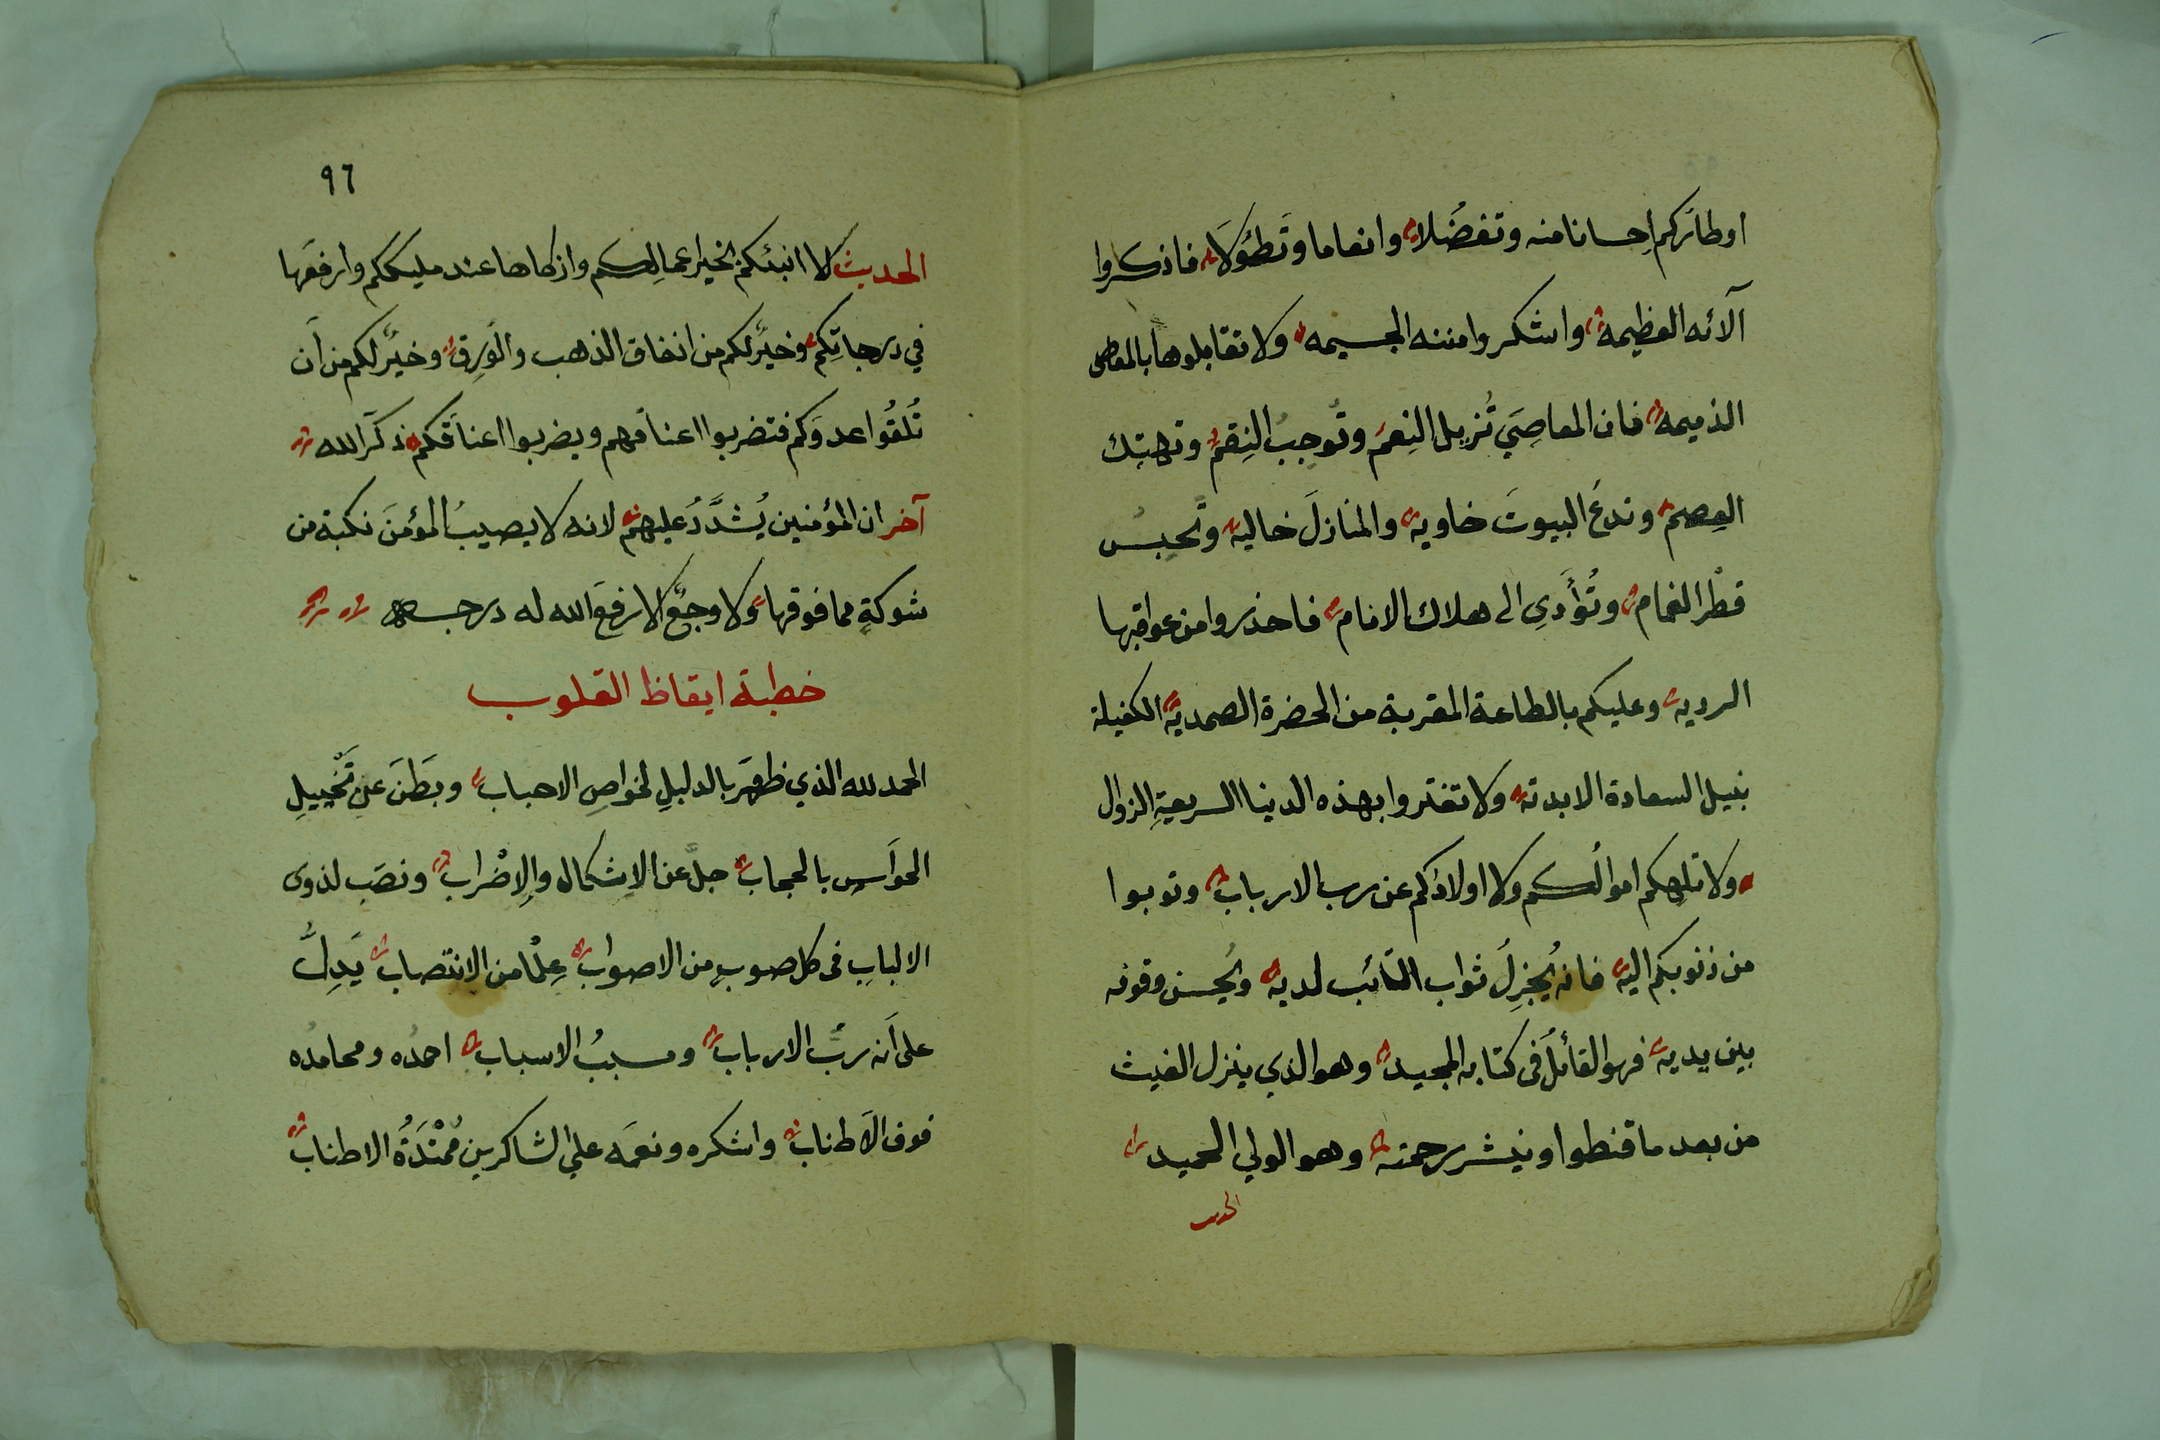 اوطاركم احسانا منه وتفضُلا وانعاما وتَطَوُلَا فاذكروا
آلائه العظيمه واشكروا مننه الجسيمه ولا تقابلوها بالمعاصى
الذميمه فان المعاصِيَ تُزيل النِعمَ وتُوجبُ النِقمُ وتهتك
العِصم وتدعُ البيوتَ خاويه والمنازلَ خاليه وتحبسُ
قطْر الغمام وتُؤَدي الى هلاك الانام فاحذروا من عواقبها
الرديه وعليكم بالطاعة المقربة من الحضرة الصمديه الكفيلة
بنيل السعادة الابديه ولا تغتروا بهذه الدنيا السريعةِ الزوال
ولا تلهكم اموالكم ولا اولادكم عن رب الارباب وتوبوا
من ذنوبكم اليه فانه يُجزِلُ ثواب التائب لديه ويُحسن وقوفه
بين يديه فهو القائلُ فى كتابه المجيد وهو الذي ينزل الغيث
من بعد ما قنطوا وينشر رحمته وهو الولي الحميد
الحديث
٩٦
الحديث الا انبئكم بخير اعمالِكم وازكاها عند مليككم وارفعَها
في درجاتِكم وخيرٌ لكم من انفاق الذهب والوَرِقِ وخيرٌ لكم من أن
تُلقُوا عدوَكم فتضربوا اعناقهم ويضربوا اعناقَكم ذكرَ الله
آخر ان المؤمنين يُشدَّدُ عليهم لانه لا يصيبُ المؤمنَ نكبة من
شوكةٍ مما فوقها ولا وجعٌ الا رفعَ الله له درجه
خطبة ايقاظ القلوب
الحمد لله الذي ظهَرَ بالدليلِ لخواصِ الاحباب وبَطَنَ عن تَخْييلِ
الحوَاسِ بالحجاب جلَّ عن الاِشكال والاِضْراب ونصَب لذوى
الالبابِ فى كل صوبٍ من الاصواب عِلْما من الانتصاب يَدِلُّ
على أَنه ربُّ الارباب ومسببُ الاسباب احمدُه ومحامدُه
فوق الاَطناب واشكره ونعمَه على الشاكرين مُمْتَدَةُ الاطناب